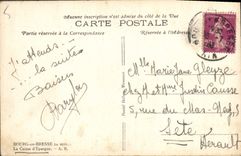 Aucune inscription n'est admise du côté de la Vue
CARTE POSTALE
Partie réservée à la Correspondance
Réservée à l'Adresse
J'attends
... la suite
Baisers
Melle Marie Jane
chez Mr et Mme Justin Causse
5, rue du Mas-
Sète
Hérault
BOURG-en-BRESSE
La Caisse d'Epargne. - A. R.